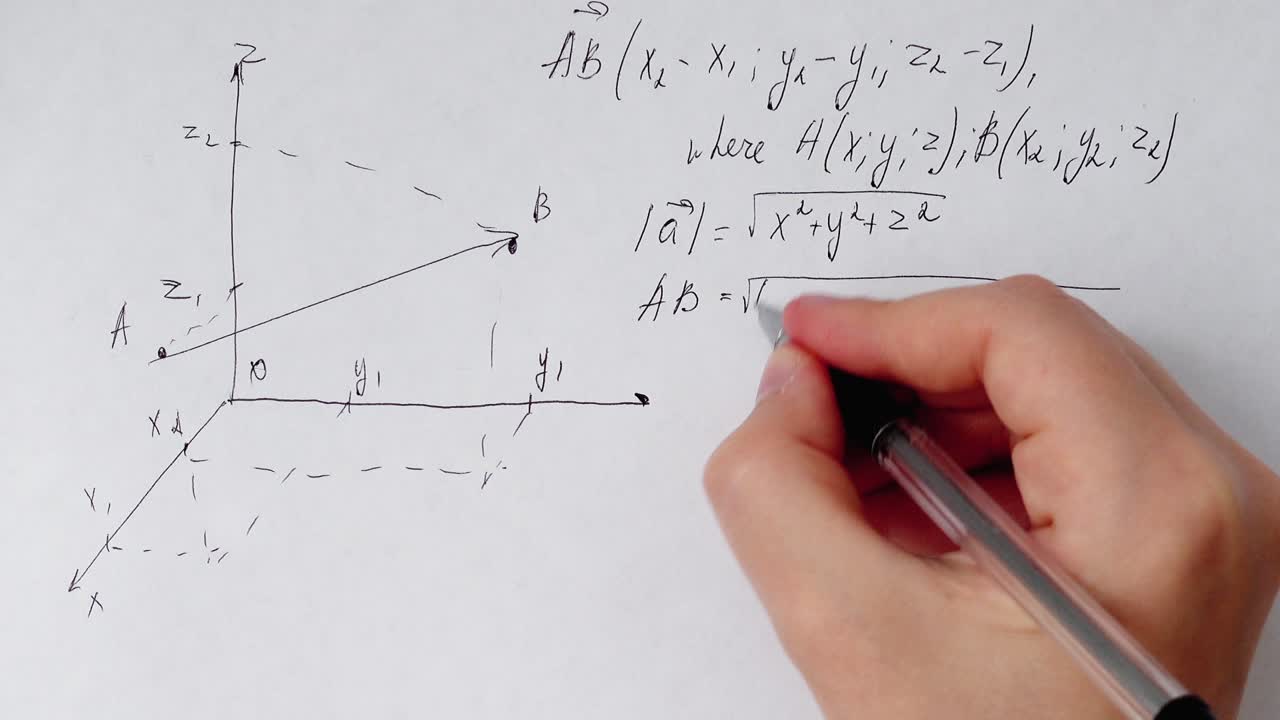 AB⃗ (x₂ - x₁; y₂ - y₁; z₂ - z₁),
where A(x; y; z); B(x₂; y₂; z₂)
|a⃗| = √x² + y² + z²
AB = √(
z
z₂
B
z₁
A
0
y₁ y₁
x₂
x₁
x